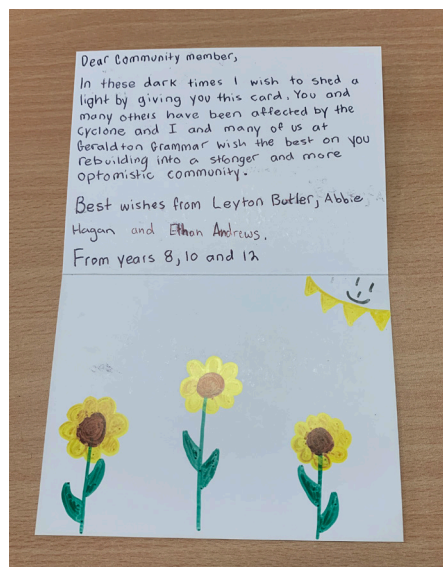 Dear Community member,
In these dark times I wish to shed a
light by giving you this card. You and
many others have been affected by the
cyclone and I and many of us at
Geraldton Grammar wish the best on you
rebuilding into a stronger and more
optomistic community.
Best wishes from Leyton Butler, Abbie
Hagan and Ethan Andrews.
From years 8, 10 and 12